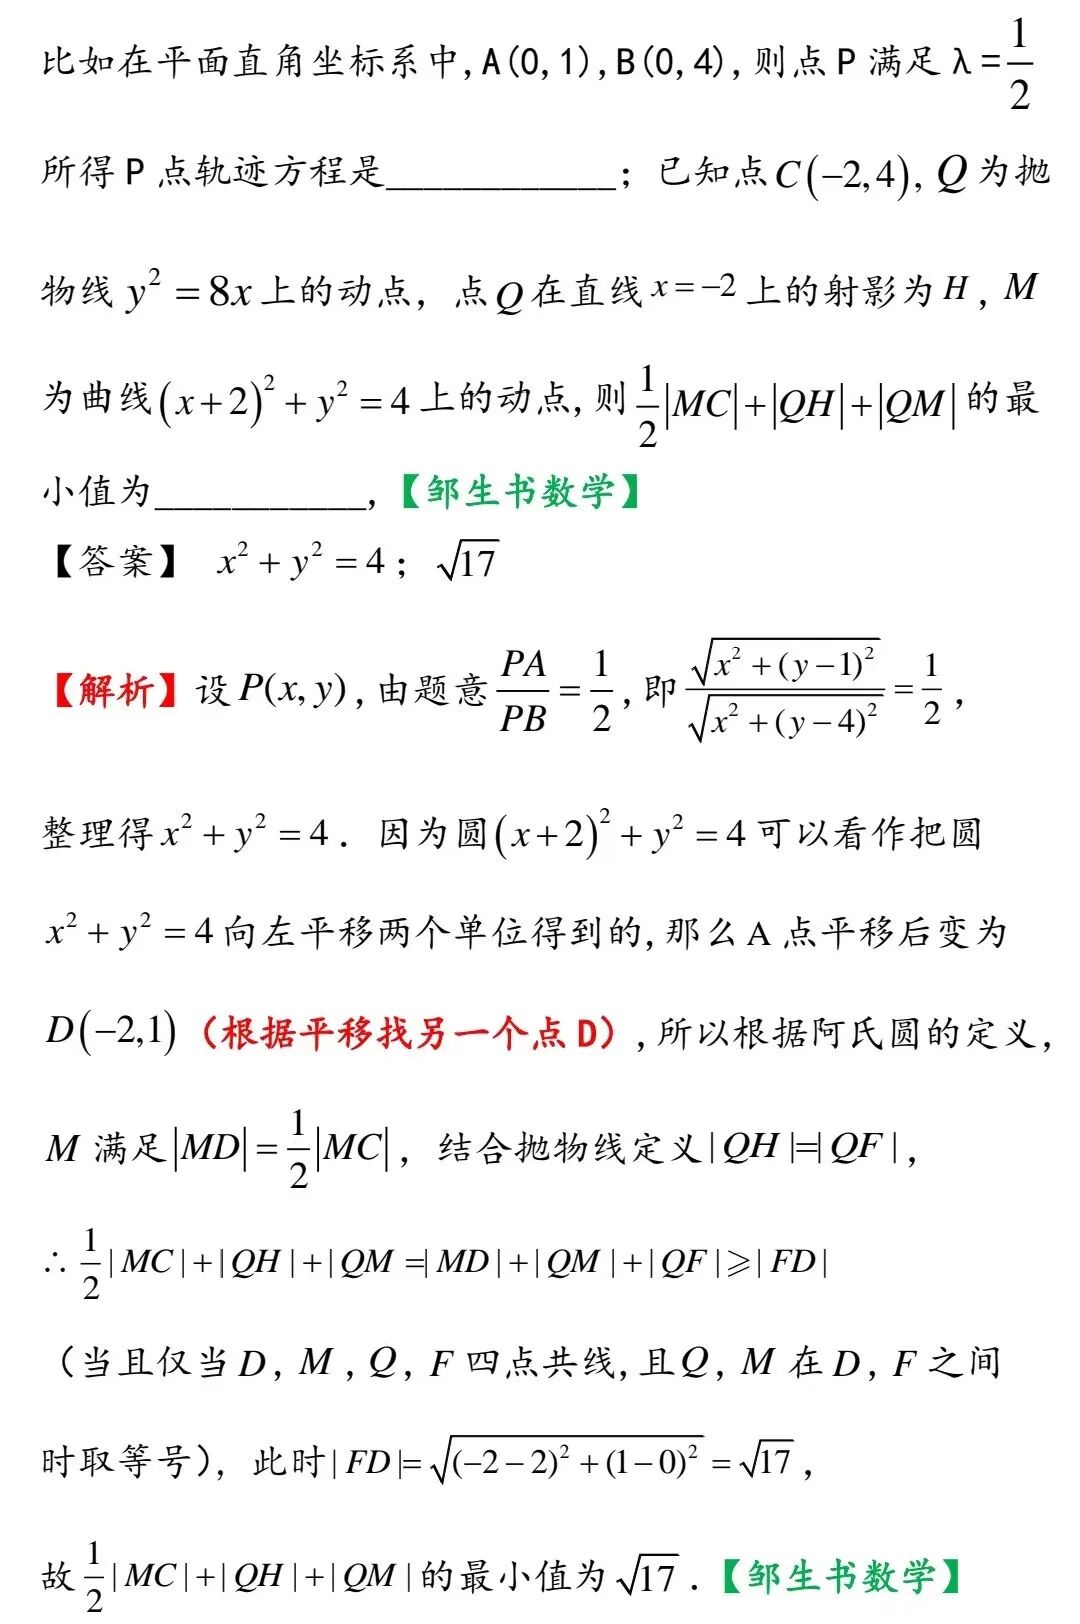 比如在平面直角坐标系中,A(0,1),B(0,4),则点 P 满足 λ=1/2
所得 P 点轨迹方程是____________；已知点C(−2,4), Q 为抛
物线 y²=8x 上的动点，点Q在直线 x=−2 上的射影为H，M
为曲线(x+2)²+y²=4 上的动点,则 1/2|MC|+|QH|+|QM| 的最
小值为___________,【邹生书数学】
【答案】 x²+y²=4；√17
【解析】设P(x,y),由题意 PA/PB=1/2,即 √(x²+(y−1)²)/√(x²+(y−4)²)=1/2，
整理得x²+y²=4．因为圆(x+2)²+y²=4 可以看作把圆
x²+y²=4 向左平移两个单位得到的,那么A 点平移后变为
D(−2,1)（根据平移找另一个点 D）,所以根据阿氏圆的定义，
M 满足|MD|=1/2|MC|，结合抛物线定义|QH|=|QF|，
∴ 1/2|MC|+|QH|+|QM=|MD|+|QM|+|QF|⩾|FD|
（当且仅当D，M，Q，F 四点共线,且Q，M 在D，F 之间
时取等号），此时|FD|=√((−2−2)²+(1−0)²)=√17，
故 1/2|MC|+|QH|+|QM|的最小值为 √17．【邹生书数学】